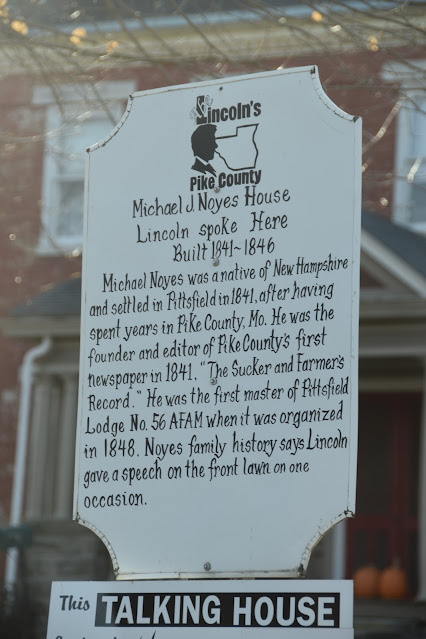 Lincoln's
Pike County
Michael J. Noyes House
Lincoln spoke Here
Built 1841~1846
Michael Noyes was a native of New Hampshire
and settled in Pittsfield in 1841, after having
spent years in Pike County, Mo. He was the
founder and editor of Pike County's first
newspaper in 1841. "The Sucker and Farmer's
Record." He was the first master of Pittsfield
Lodge No. 56 AFAM when it was organized
in 1848. Noyes family history says Lincoln
gave a speech on the front lawn on one
occasion.
This TALKING HOUSE